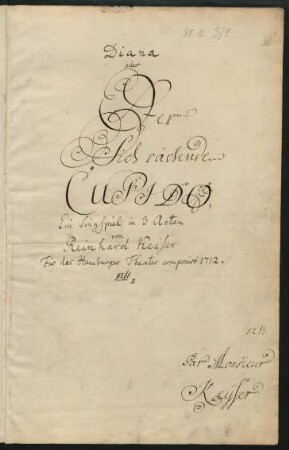 Diana
oder
Der
Sich rächende
CUPIDO,
Ein Singspiel in 3 Acten
von
Reinhard Keiser
Für das Hamburger Theater componirt 1712.
Par Monsieur
Keyser